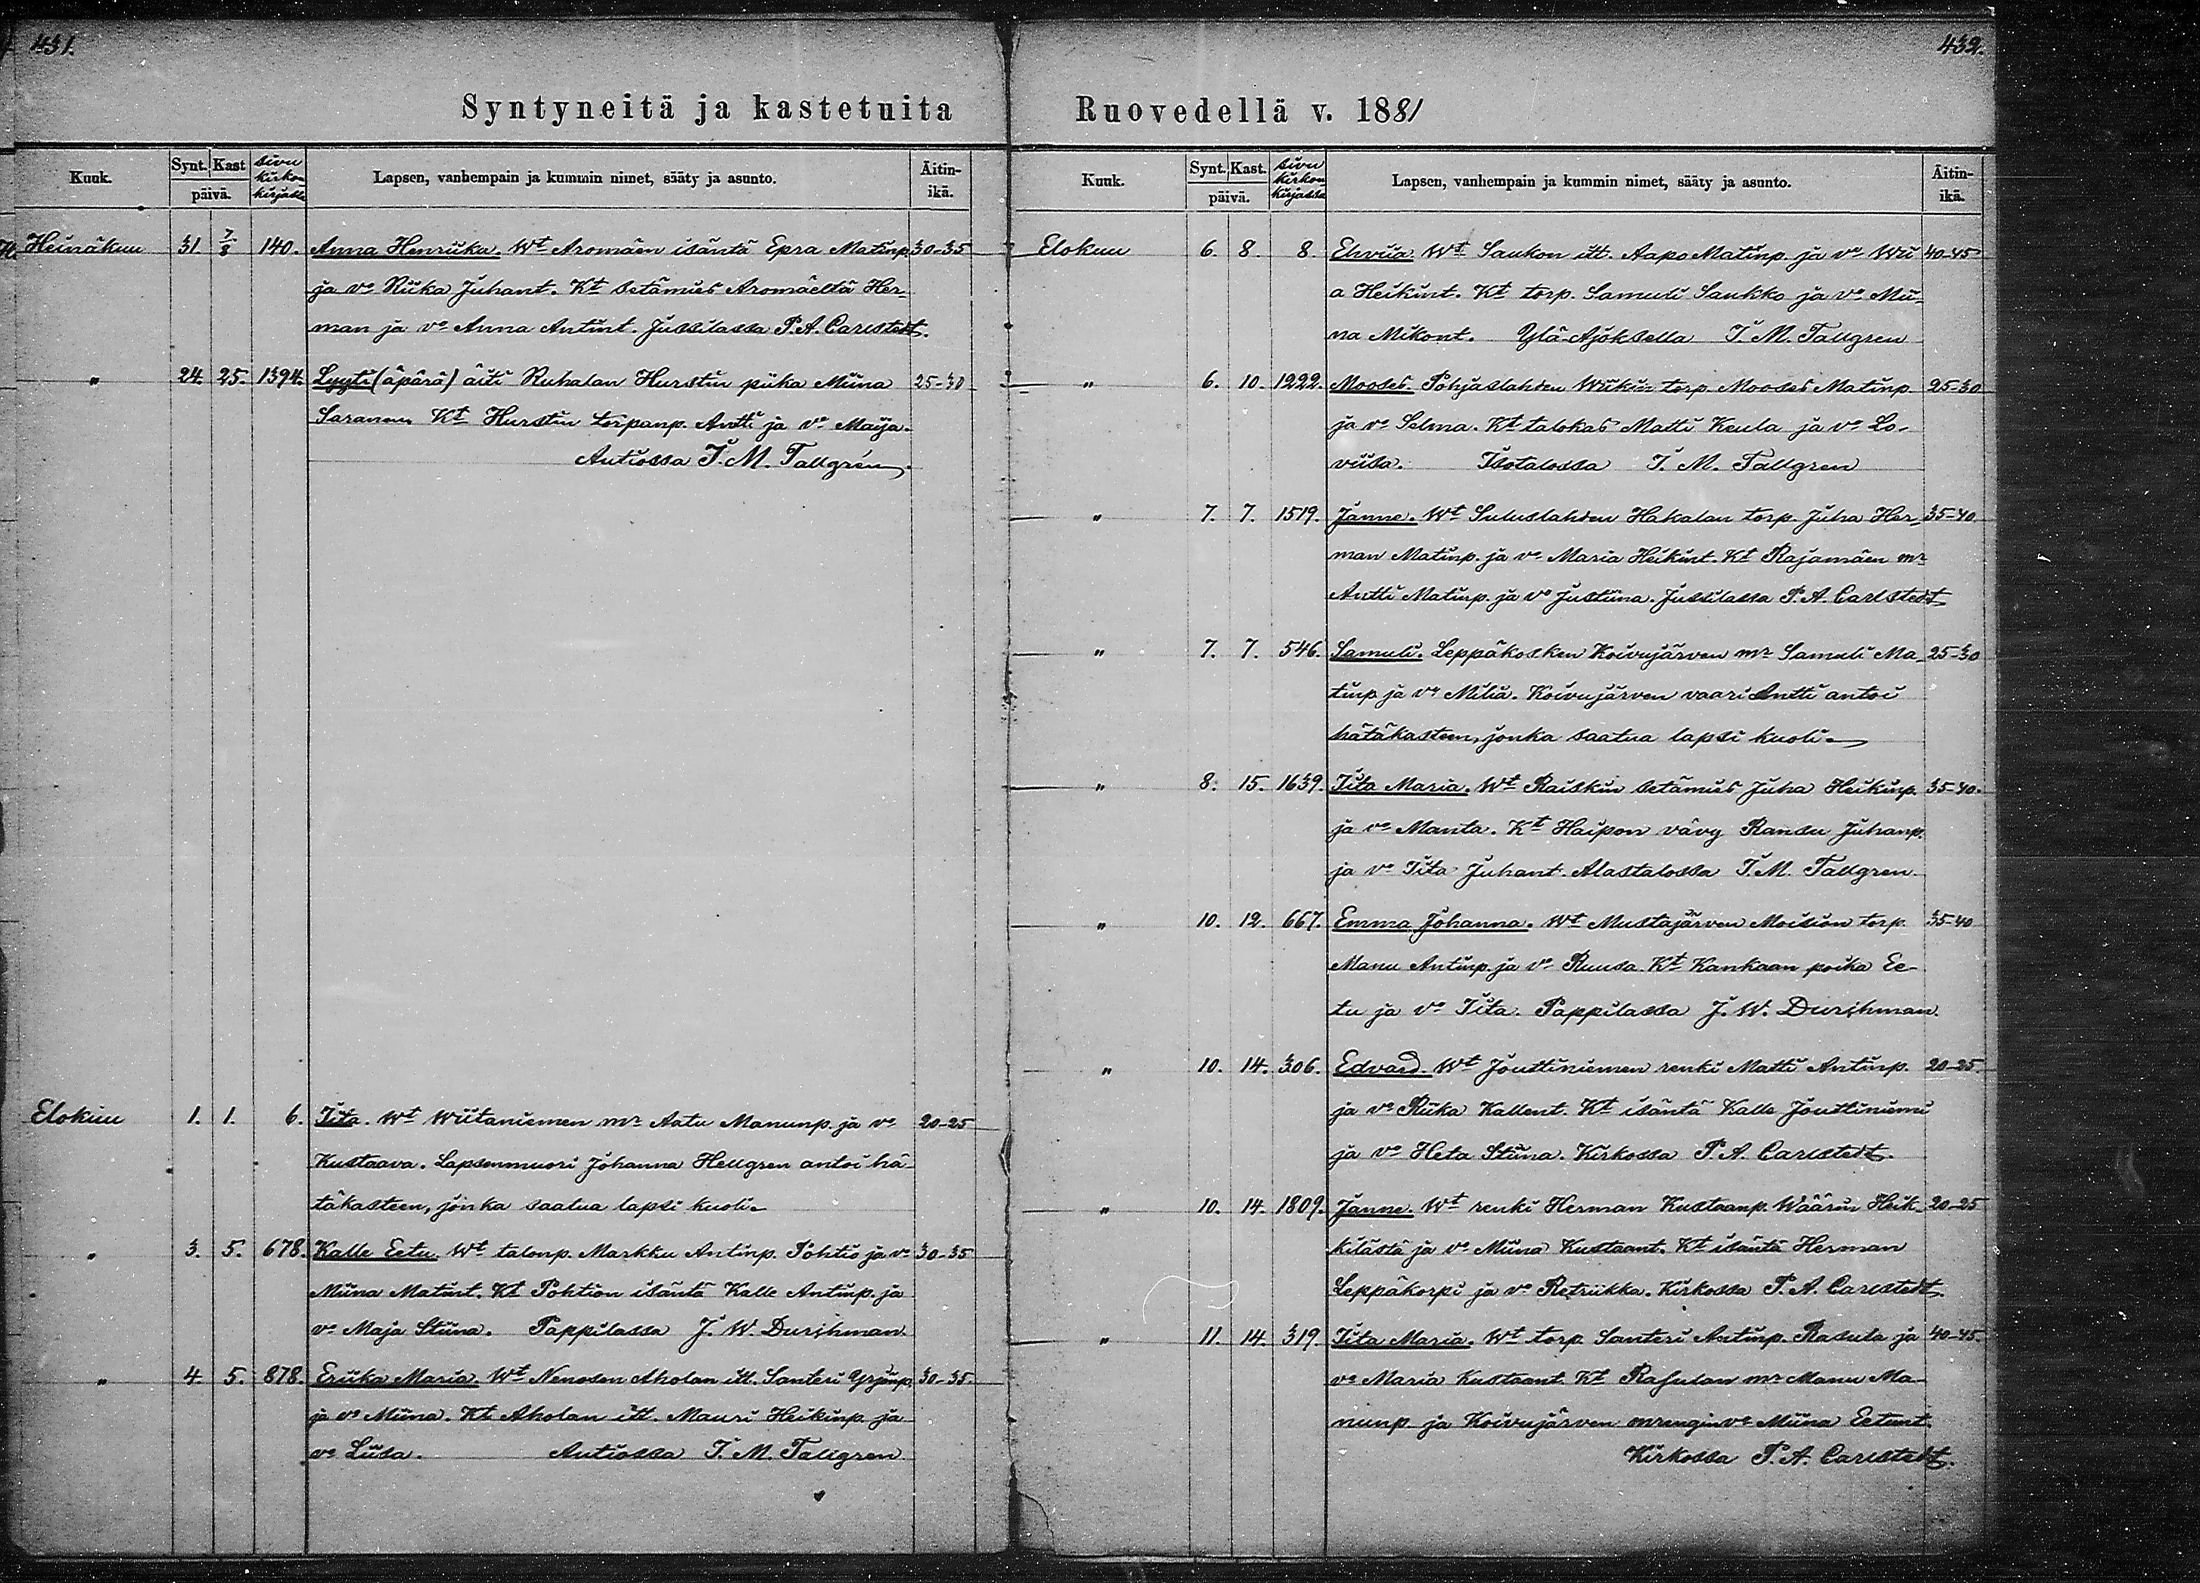 431.
Syntyneitä ja kastetuita
Kuuk. Synt. Kast. päivä. sivu kirkon kirjassa Lapsen, vanhempain ja kummin nimet, sääty ja asunto. Äitin-ikä.
Heinäkuu 31. 7/8 140. Anna Henriika. Wt Aromäen isäntä Epra Matinp. 30-35
ja vo Riika Juhant. Kt setämies Aromäeltä Her-
man ja vo Anna Antint. Jussilassa P. A. Carlstedt.
" 24. 25. 1394. Lyyti (äpärä) äiti Ruhalan Hurstin piika Miina 25-30
Saranen Kt Hurstin torpanp. Antti ja vo Maija.
Autiossa I. M. Tallgrén.
Elokuu 1. 1. 6. Iita. Wt Wiitaniemen mr Aatu Manunp. ja vo 20-25
Kustaava. Lapsenmuori Johanna Hellgren antoi hä-
täkasteen, jonka saatua lapsi kuoli.
" 3. 5. 678. Kalle Eetu. Wt talonp. Markku Antinp. Pohtio ja vo 30-35
Miina Matint. Kt Pohtion isäntä Kalle Antinp. ja
vo Maja Stiina. Pappilassa J. W. Durchman.
" 4. 5. 878. Eriika Maria. Wt Nenosen Aholan itt. Santeri Yrjönp. 30-35.
ja vo Miina. Kt Aholan itt. Mauri Heikinp. ja
vo Liisa. Autiossa I. M. Tallgren
432.
Ruovedellä v. 1881
Kuuk. Synt. Kast. päivä. sivu kirkon kirjassa Lapsen, vanhempain ja kummin nimet, sääty ja asunto. Äitin-ikä.
Elokuu 6. 8. 8. Elviia. Wt Saukon itt. Aapo Matinp. ja vo Wii 40-45
a Heikint. Kt torp. Samuli Saukko ja vo Mii-
na Mikont. Ylä-Ajoksella I. M. Tallgren
" 6. 10. 1222. Mooses. Pohjaslahden Wiikin torp. Mooses Matinp. 25-30
ja vo Selma. Kt talokas Matti Keula ja vo Lo-
viisa. Isotalossa I. M. Tallgren
" 7. 7. 1519. Janne. Wt Suluslahden Hakalan torp. Juha Her- 35-40
man Matinp. ja vo Maria Heikint. Kt Rajamäen mr
Antti Matinp. ja vo Justiina. Jussilassa P. A. Carlstedt
" 7. 7. 546. Samuli. Leppäkosken Koivujärven mr Samuli Ma- 25-30
tinp ja vo Milia. Koivujärven vaari Antti antoi
hätäkasteen, jonka saatua lapsi kuoli.
" 8. 15. 1639. Iita Maria. Wt Raiskin setämies Juha Heikinp. 35-40.
ja vo Manta. Kt Haipon vävy Ransu Juhanp.
ja vo Iita Juhant. Alastalossa I. M. Tallgren.
" 10. 12. 667. Emma Johanna. Wt Mustajärven Moision torp. 35-40
Manu Antinp. ja vo Ruusa. Kt Kankaan poika Ee-
tu ja vo Iita. Pappilassa J. W. Durchman.
" 10. 14. 306. Edvard. Wt Jouttiniemen renki Matti Antinp. 20-25.
ja vo Riika Kallent. Kt isäntä Kalle Jouttiniemi
ja vo Heta Stiina. Kirkossa P. A. Carlstedt.
" 10. 14. 1809. Janne. Wt renki Herman Kustaanp. Wäärin Heik- 20-25
kilästä ja vo Miina Kustaant. Kt isäntä Herman
Leppäkorpi ja vo Retriikka. Kirkossa P. A. Carlstedt.
" 11. 14. 319. Iita Maria. Wt torp. Santeri Antinp. Rasula ja 40-45
vo Maria Kustaant. Kt Rasulan mr Manu Ma-
nunp. ja Koivujärven mrengin vo Miina Eetunt.
Kirkossa P. A. Carlstedt.